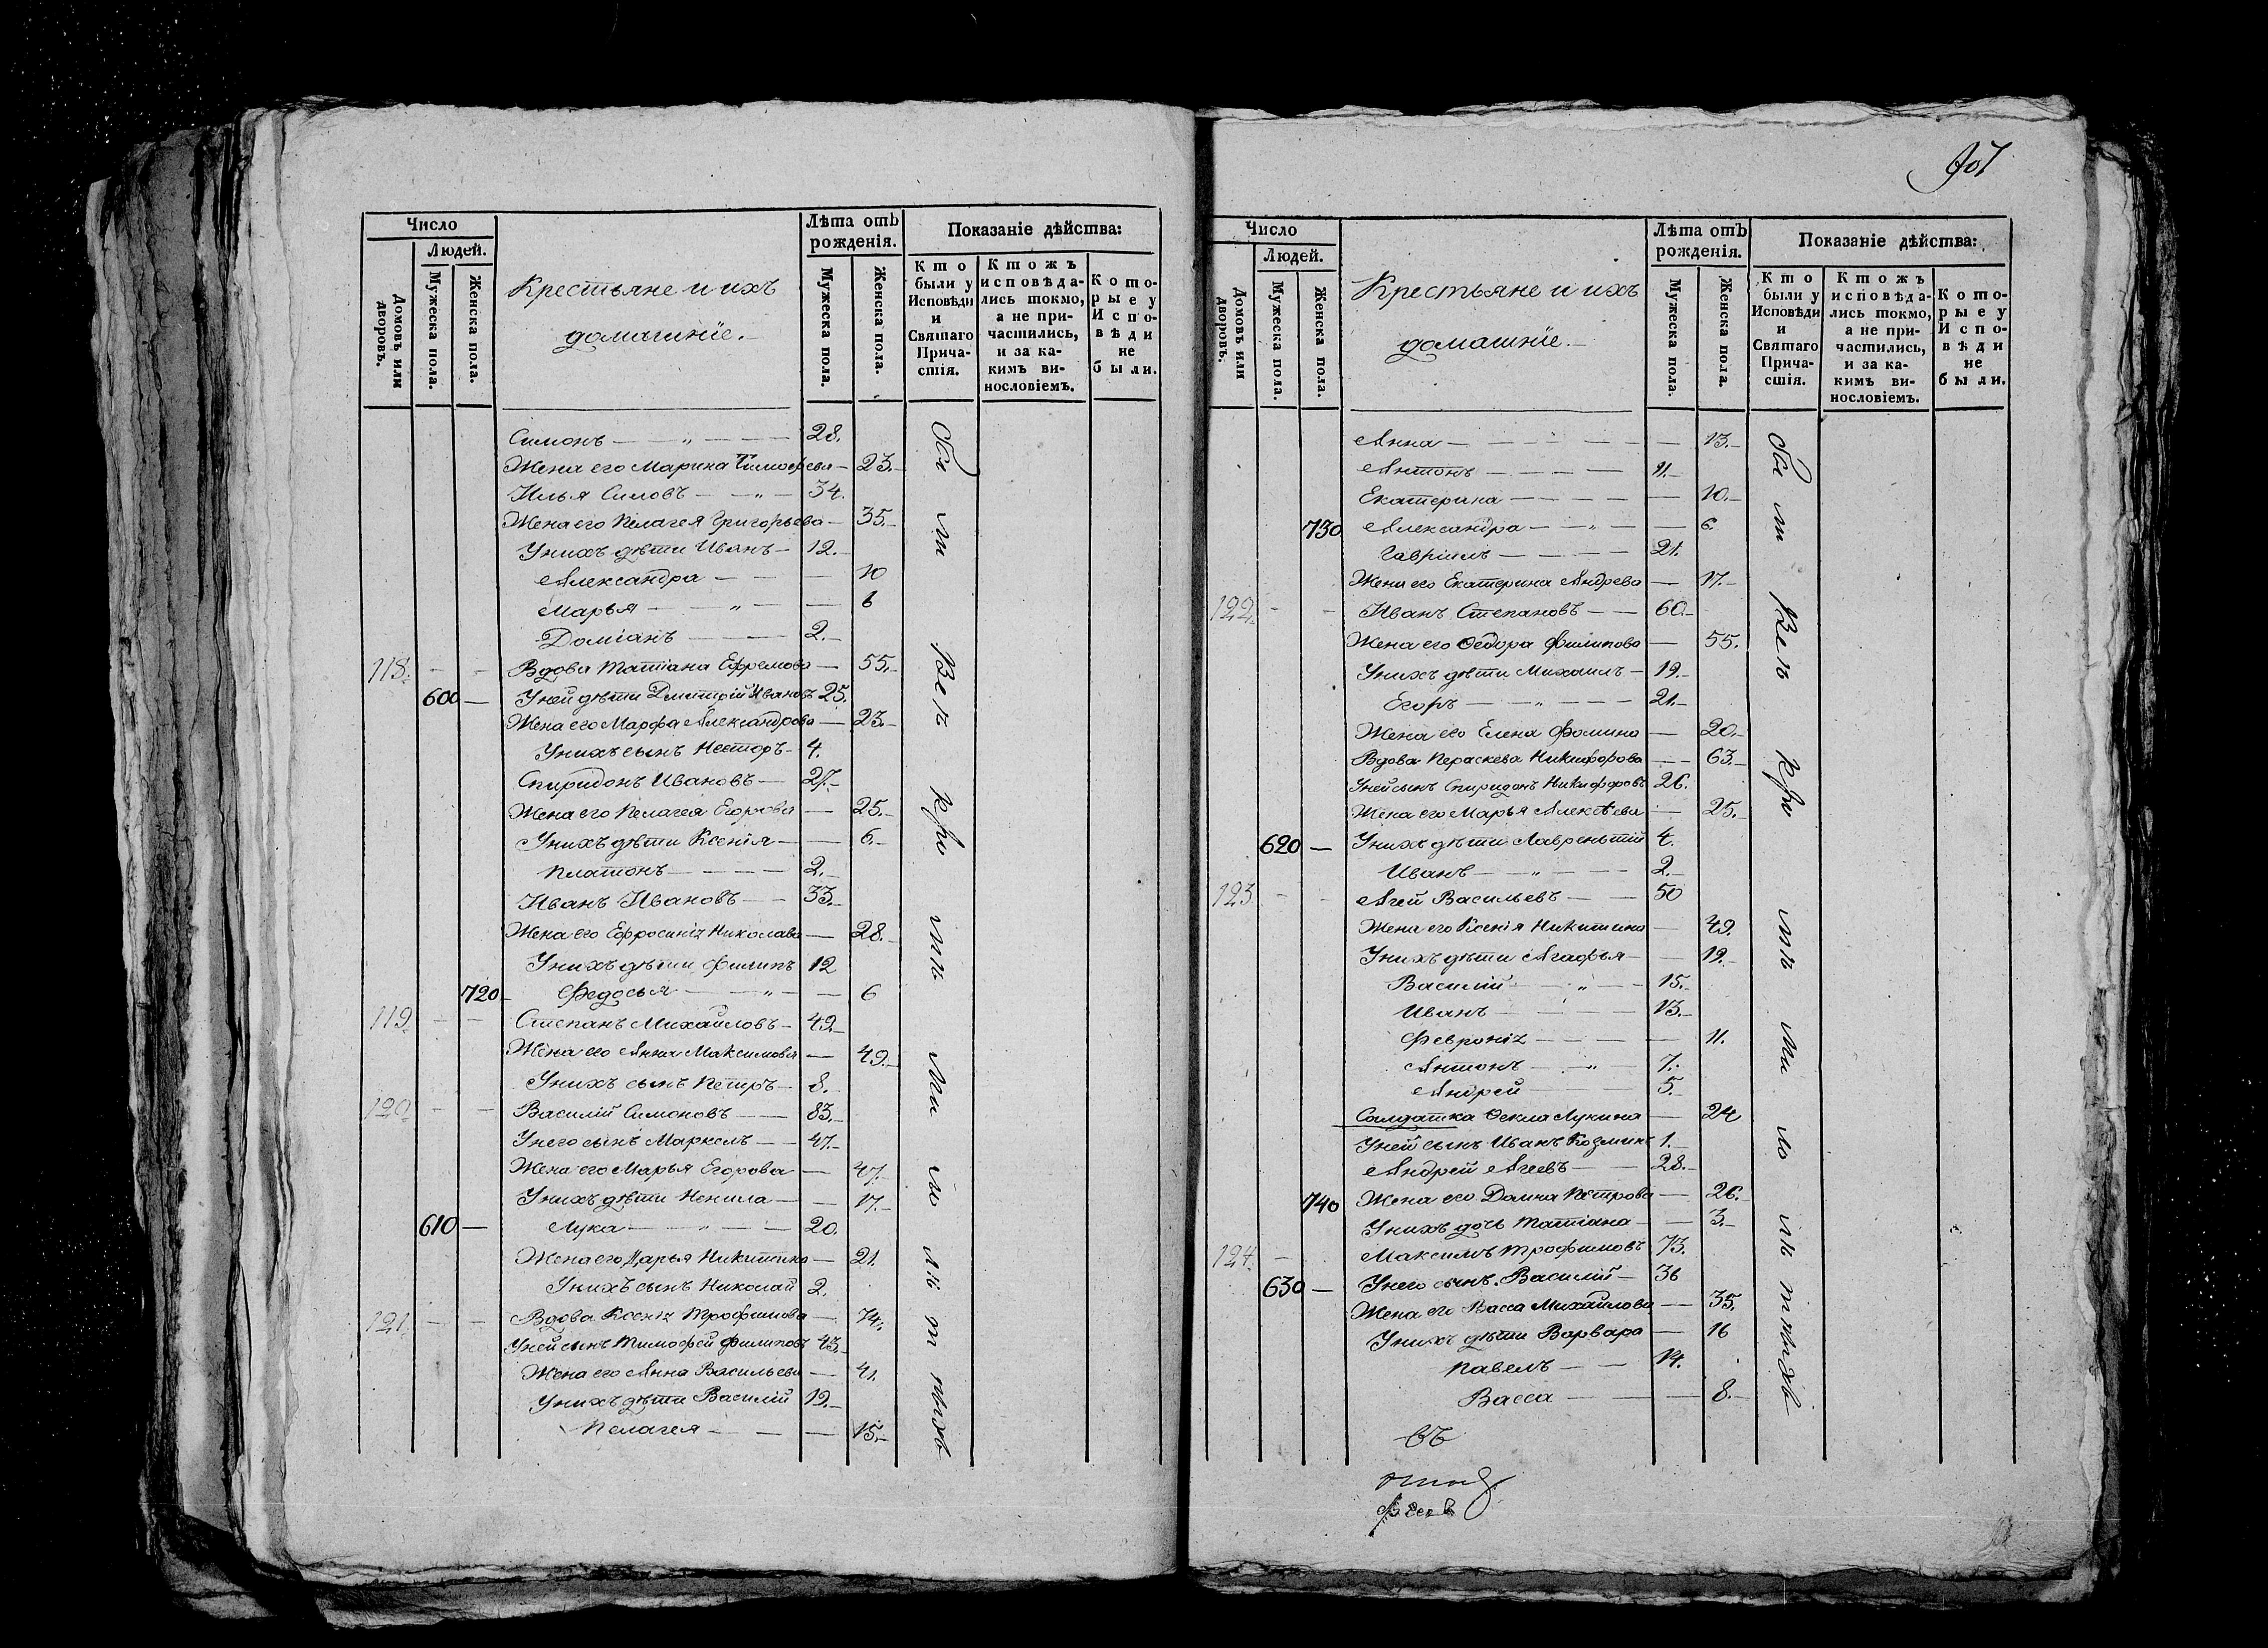 Число
Людей.
Домовъ или дворовъ.
Мужеска пола.
Женска пола.
Крестьяне и ихъ
домашнiе.
Лѣта отъ рожденiя.
Мужеска пола.
Женска пола.
Показанiе дѣйства:
Кто были у Исповѣди и Святаго Прича-стiя.
Ктожъ исповѣда-лись токмо, а не при-частились, и за ка-кимъ ви-нословiемъ.
Кото-рые у Испо-вѣди не были.
Симонъ — „ — 28.
Жена его Марина Тимофеева — 23.
Илья Симовъ — „ — 34.
Жена его Пелагея Григорьева — 35.
У нихъ дѣти Иванъ — 12.
Александра — 10
Марья — „ — 6
Домiанъ — 2.
118. — Вдова Татiана Ефремова — 55.
600 — У ней дѣти Дмитрiй Ивановъ 25.
Жена его Марфа Александрова — 23.
У нихъ сынъ Несторъ — 4.
Спиридонъ Ивановъ — 27.
Жена его Пелагея Егорова — 25.
У нихъ дѣти Ксенiя — 6.
Платонъ — 2.
Иванъ Ивановъ — 33.
Жена его Ефросинiя Николава — 28.
У нихъ дѣти Филипъ 12
720 Федосья — „ — 6
119. — Степанъ Михайловъ — 49.
Жена его Анна Максимова — 49.
У нихъ сынъ Петръ — 8.
120. — Василiй Симоновъ — 83.
У него сынъ Маркелъ — 47.
Жена его Марья Егорова — 47.
У нихъ дѣти Ненила — 17.
610 — Лука — „ — 20.
Жена его Дарья Никитина — 21.
У нихъ сынъ Николай 2.
121. — Вдова Ксенiя Трофимова — 74.
У ней сынъ Тимофей Филиповъ 43.
Жена его Анна Васильева — 41.
У нихъ дѣти Василiй 19.
Пелагея — 15.
Число
Людей.
Домовъ или дворовъ.
Мужеска пола.
Женска пола.
Крестьяне и ихъ
домашнiе.
Лѣта отъ рожденiя.
Мужеска пола.
Женска пола.
Показанiе дѣйства:
Кто были у Исповѣди и Святаго Прича-стiя.
Ктожъ исповѣда-лись токмо, а не при-частились, и за ка-кимъ ви-нословiемъ.
Кото-рые у Испо-вѣди не были.
Анна — 13.
Антонъ — 11.
Екатерина — 10.
730 Александра — „ — 6.
Гаврiилъ — 21.
Жена его Екатерина Андрева — 17.
122. — Иванъ Степановъ — 60.
Жена его Ѳедора Филипова — 55.
У нихъ дѣти Михаилъ — 19.
Егоръ — „ — 21.
Жена его Елена Фомина — 20.
Вдова Пераскева Никифорова — 63.
У ней сынъ Спиридонъ Никифоровъ 26.
Жена его Марья Алексѣева — 25.
620 — У нихъ дѣти Лаврентiй 4.
Иванъ — „ — 2.
123 — Агей Васильевъ — 50
Жена его Ксенiя Никитина — 49.
У нихъ дѣти Агафья — 19.
Василiй — „ — 15.
Иванъ — 13.
Февронiя — 11.
Антонъ — „ — 7.
Андрей — 5.
Салдатка Ѳекла Лукина — 24
У ней сынъ Иванъ Козминъ 1.
Андрей Агеевъ — 28.
740 Жена его Домна Петрова — 26.
У нихъ дочь Татiана — 3.
124. — Максимъ Трофимовъ 73.
630 — У него сынъ Василiй — 36
Жена его Васса Михайлова — 35.
У нихъ дѣти Варвара — 16
Павелъ — 14.
Васса — 8.